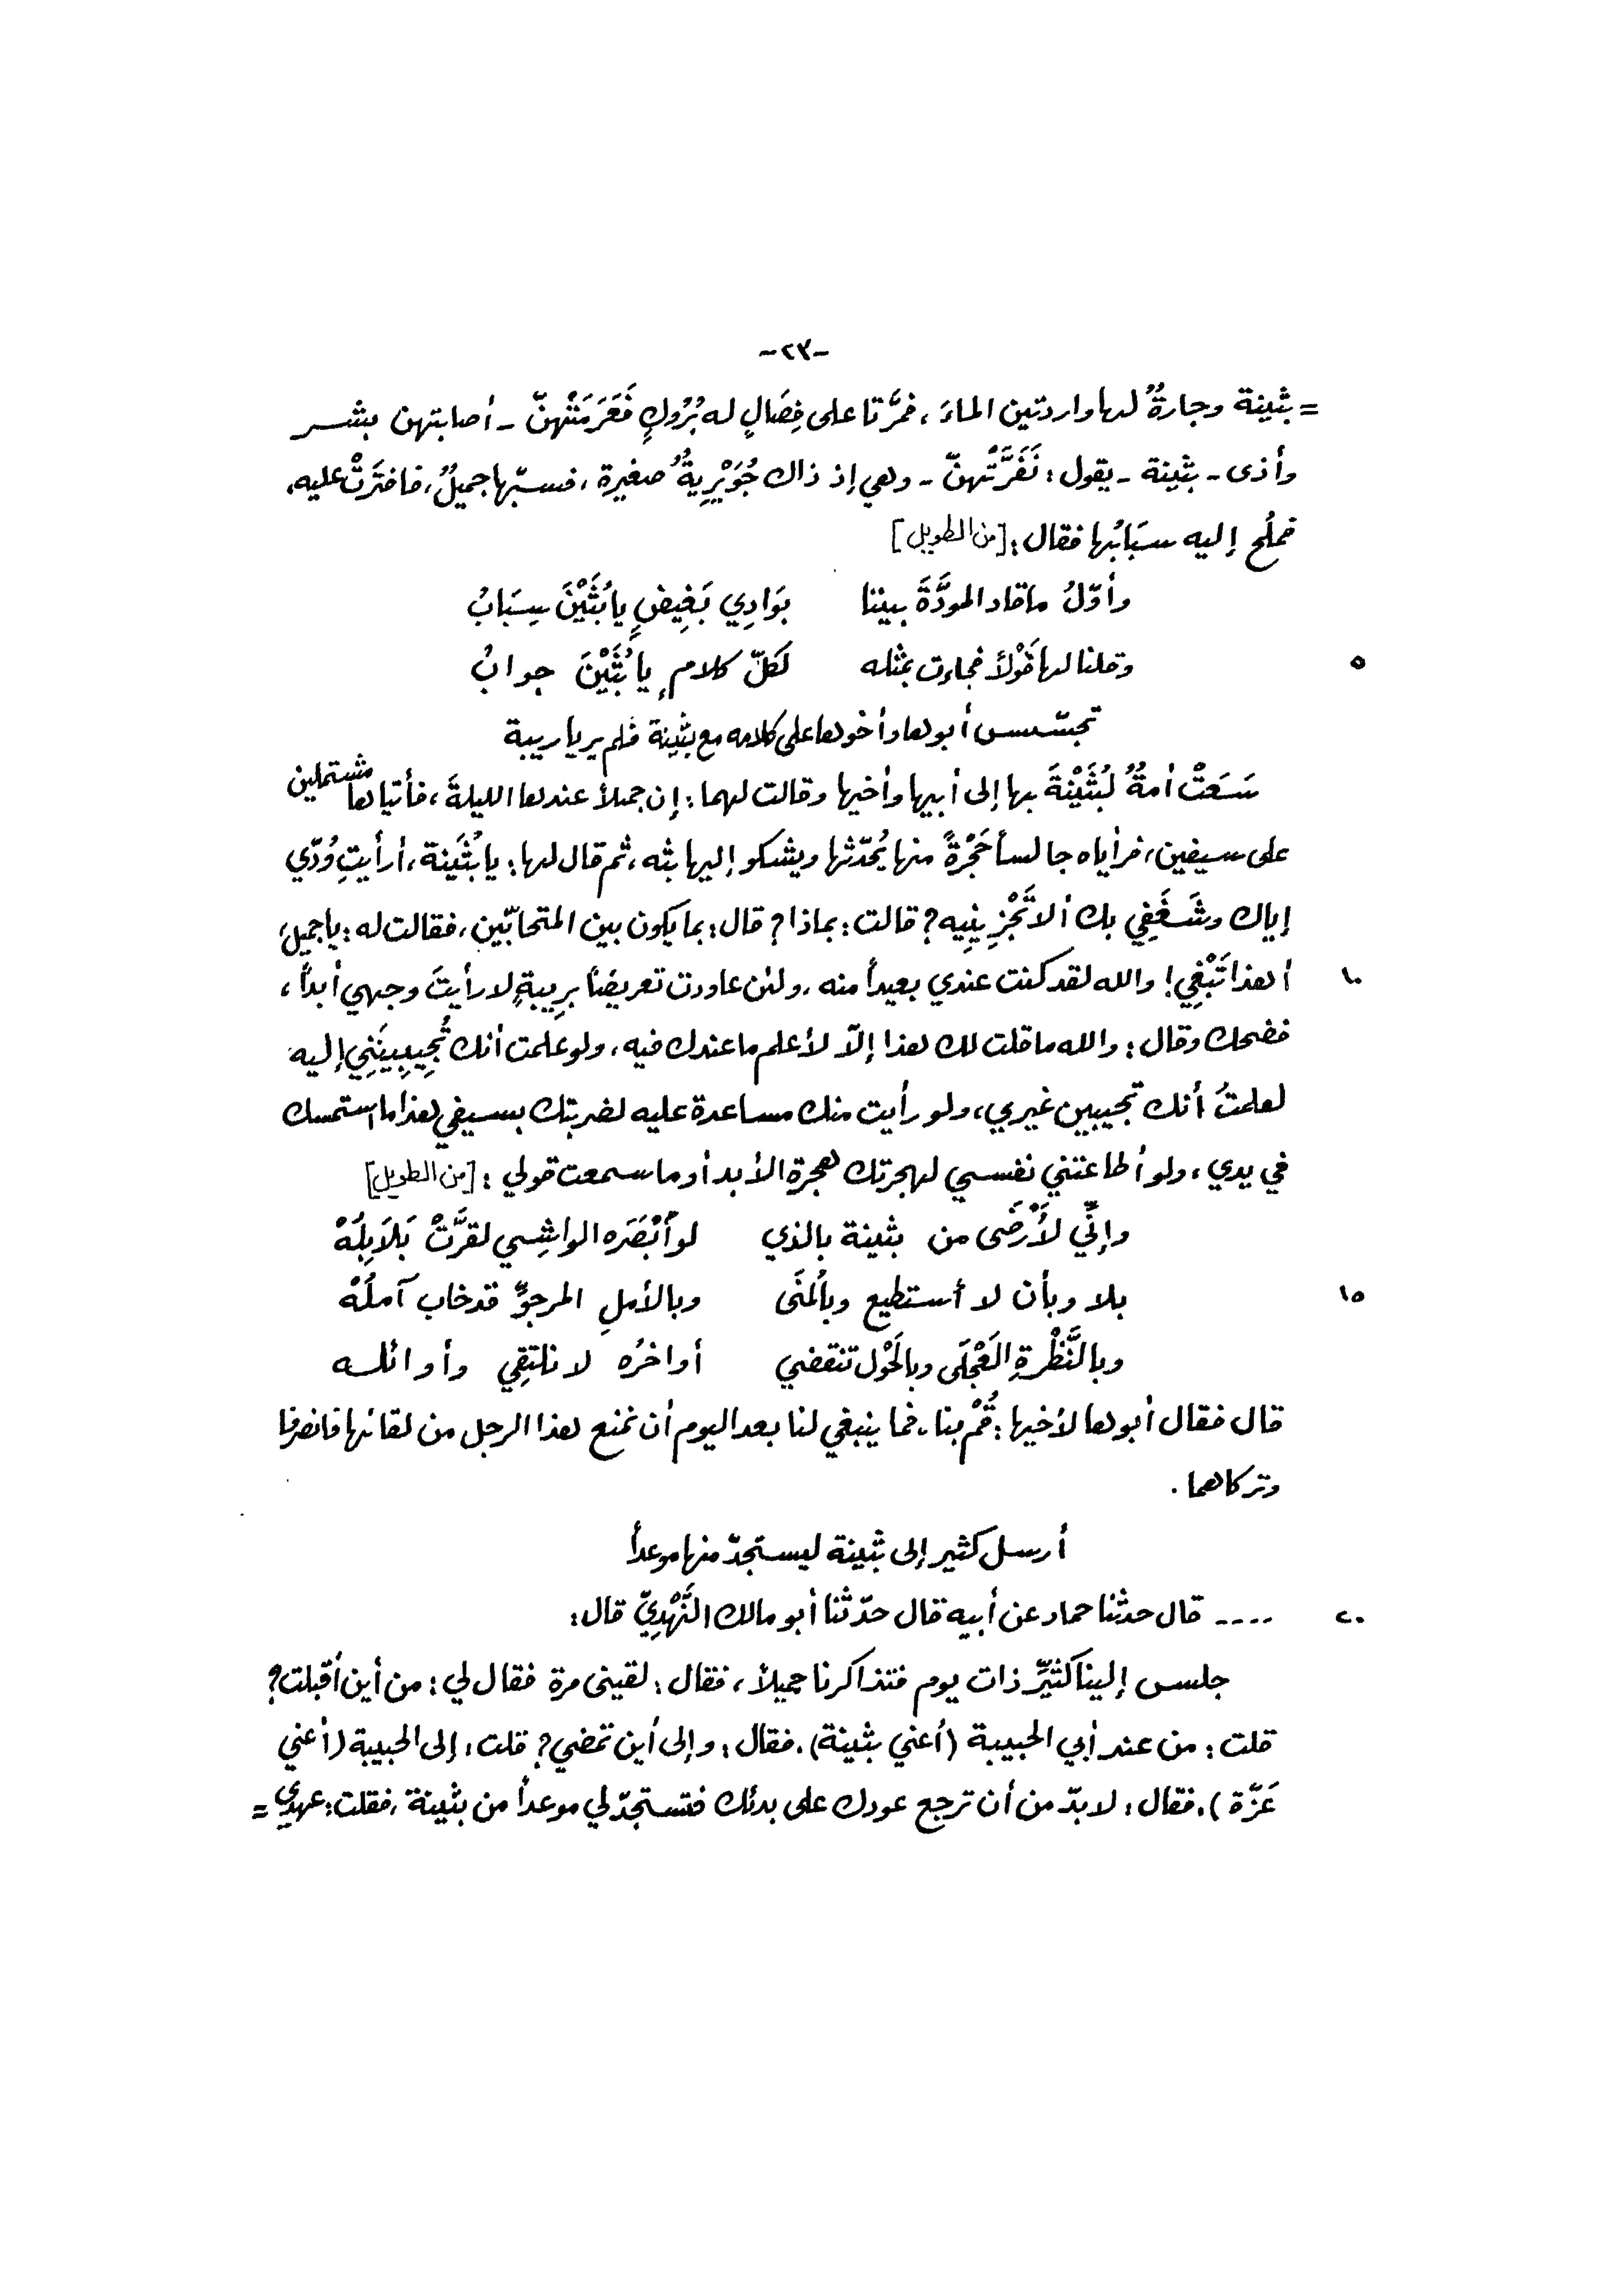 -٢٣-
= بثينة وجارةٌ لها واردتين الماءَ، فمرَّتا على فِصَالٍ له بُرُوكٍ فَعَرَمَتْهنّ - أصابتهن بشر
وأذى - بثينة - يقول: نَفَرَّتْهنّ - وهي إذ ذاك جُوَيْرِيةٌ صغيرة، فسبّها جميلٌ، فافترَتْ عليه،
فملُح إليه سِبَابُها فقال: [من الطويل]
وأوّلُ ما قاد المودَّةَ بيننا    بوَادِي بَغِيضٍ يا بُثَيْنَ سِبَابُ
٥ وقلنا لها قَوْلاً فجاءت بمثله    لكلّ كلامٍ يا بُثَيْنَ جوابُ
تجسّس أبوها وأخوها على كلامه مع بثينة فلم يريا ريبة
سَعَتْ أمةٌ لبُثَيْنةَ بها إلى أبيها وأخيها وقالت لهما: إن جميلاً عندها الليلةَ، فأتياها مشتملين
على سيفين، فرأياه جالساً حَجْرَةً منها يُحدّثها ويشكو إليها بثه، ثم قال لها: يا بُثَينة، أرأيتِ وُدّي
إياك وشَغَفِي بك ألا تَجْزِينِيه؟ قالت: بماذا؟ قال: بما يكون بين المتحابّين، فقالت له: يا جميلُ،
١٠ أهذا تَبْغِي! والله لقد كنت عندي بعيداً منه، ولئن عاودت تعريضاً برِيبةٍ لا رأيتَ وجهي أبداً،
فضحك وقال: والله ما قلت لك هذا إلّا لأعلم ما عندك فيه، ولو علمت أنك تُجِيبِينَنِي إليه
لعلمتُ أنك تجيبين غيري، ولو رأيت منك مساعدة عليه لضربتك بسيفي هذا ما استمسك
في يدي، ولو أطاعتني نفسي لهجرتك هجرة الأبد أو ما سمعت قولي: [من الطويل]
وإنِّي لأَرْضَى من بثينة بالذي    لو أَبْصَرَه الواشِي لقرَّتْ بَلاَبِلُهْ
١٥ بلا وبأن لا أستطيع وبالمُنَى    وبالأملِ المرجوِّ قد خاب آملُهْ
وبالنَّظْرةِ العَجْلَى وبالحَوْل تنقضي    أواخرُه لا نلتقِي وأوائله
قال فقال أبوها لأخيها: قُمْ بنا، فما ينبغي لنا بعد اليوم أن نمنع هذا الرجل من لقائها فانصرفا
وتركاهما.
أرسل كثير إلى بثينة ليستجدّ منها موعداً
٢٠ ---- قال حدثنا حماد عن أبيه قال حدّثنا أبو مالك النَّهْدِيّ قال:
جلس إلينا كثيِّر ذات يوم فتذاكرنا جميلاً، فقال: لقيني مرة فقال لي: من أين أقبلت؟
قلت: من عند أبي الحبيبة (أعني بثينة). فقال: وإلى أين تمضي؟ قلت: إلى الحبيبة (أعني
عَزّة). فقال: لا بدّ من أن ترجع عودك على بدئك فتستجدّ لي موعداً من بثينة، فقلت: عهدي =